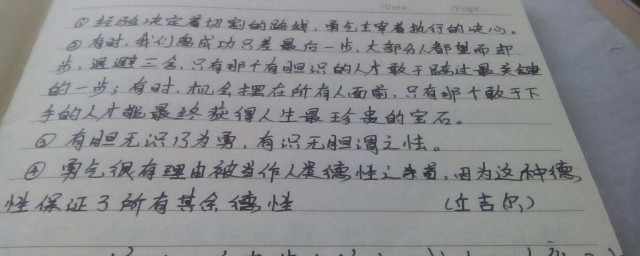 ① 经验决定着切割的路线，勇气主宰着执行的决心。
② 有时，我们离成功只差最后一步，大部分人都望而却
步，退避三舍，只有那个有胆识的人才敢于跨过最关键
的一步；有时，机会摆在所有人面前，只有那个敢于下
手的人才能最终获得人生最珍贵的宝石。
③ 有胆无识乃为勇，有识无胆谓之怯。
④ 勇气很有理由被当作人类德性之首，因为这种德
性保证了所有其余德性 （丘吉尔）